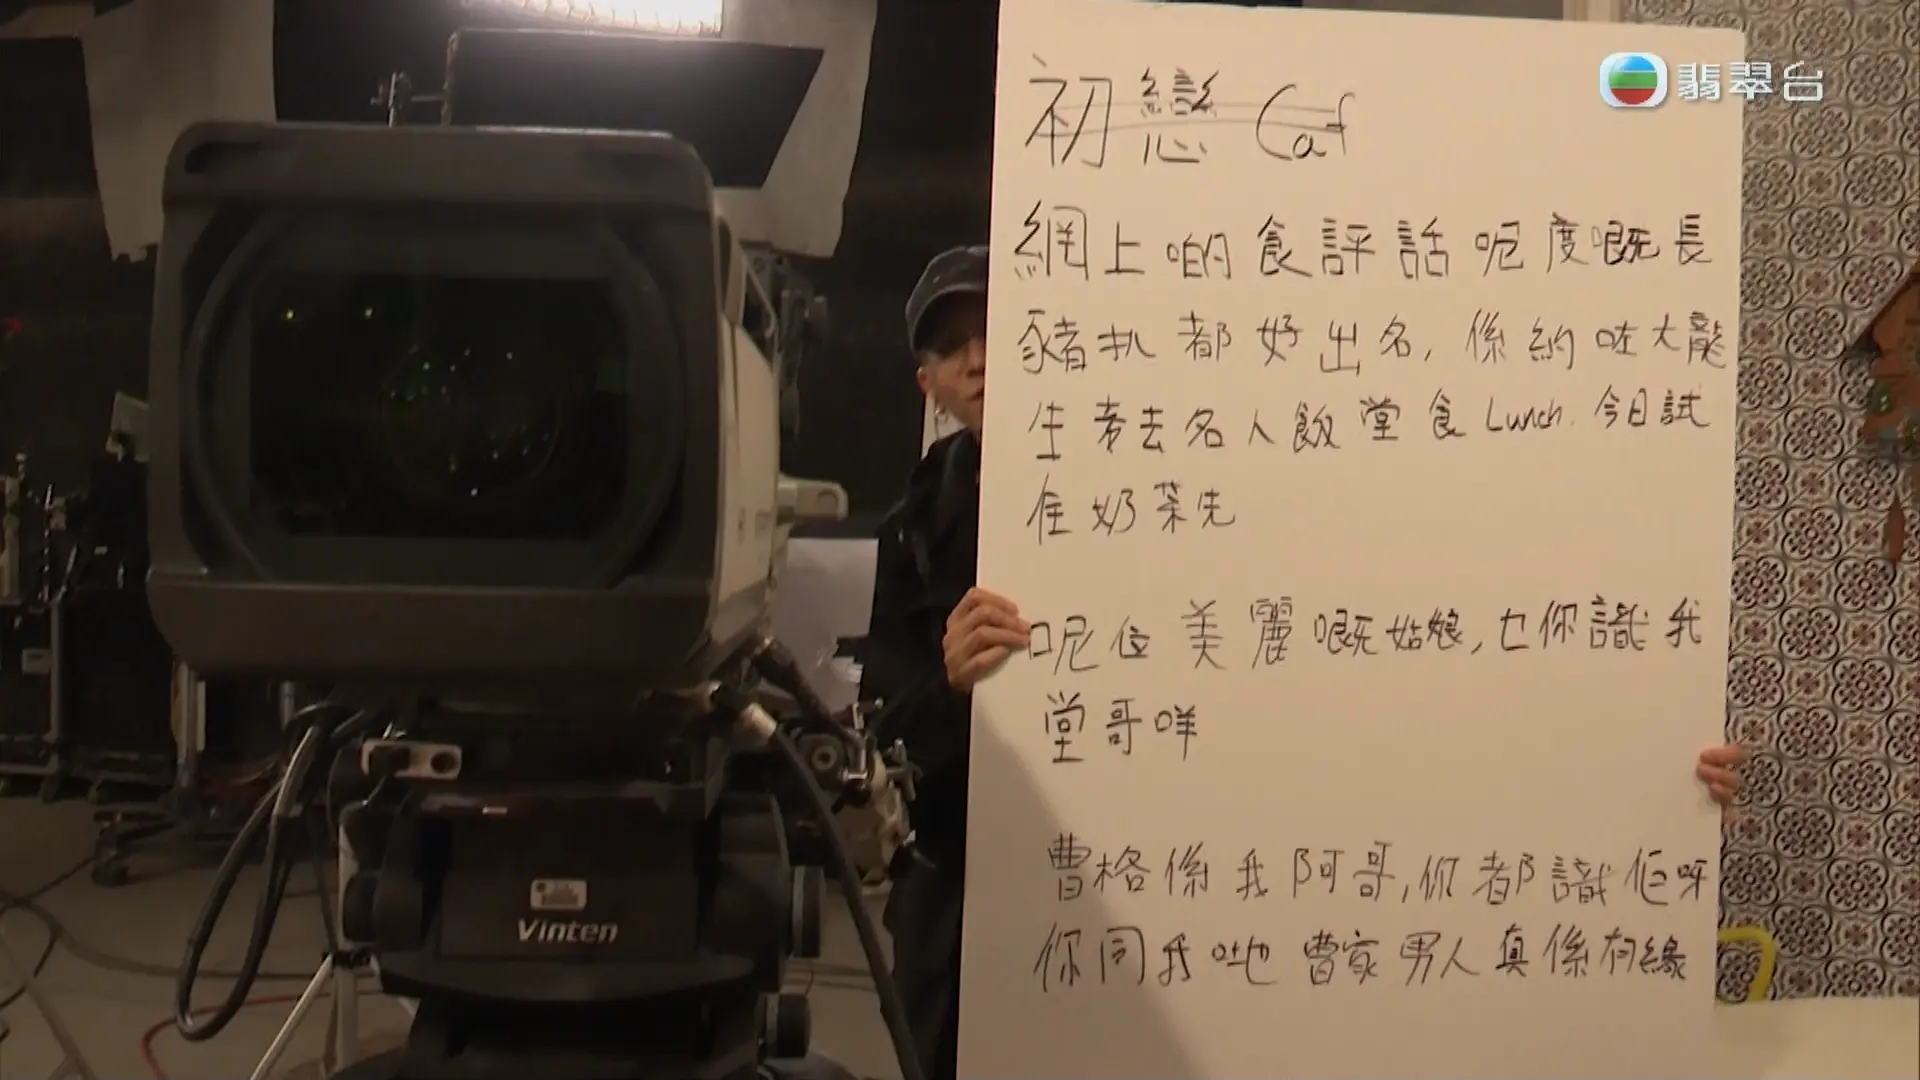 翡翠台
初戀 Caf
網上啲食評話呢度嘅長
豬扒都好出名, 係約咗大龍
生去名人飯堂食Lunch. 今日試
住奶茶先
呢位美麗嘅姑娘, 乜你識我
堂哥咩
曹格係我阿哥, 你都識佢呀
你同我哋曹家男人真係有緣
Vinten